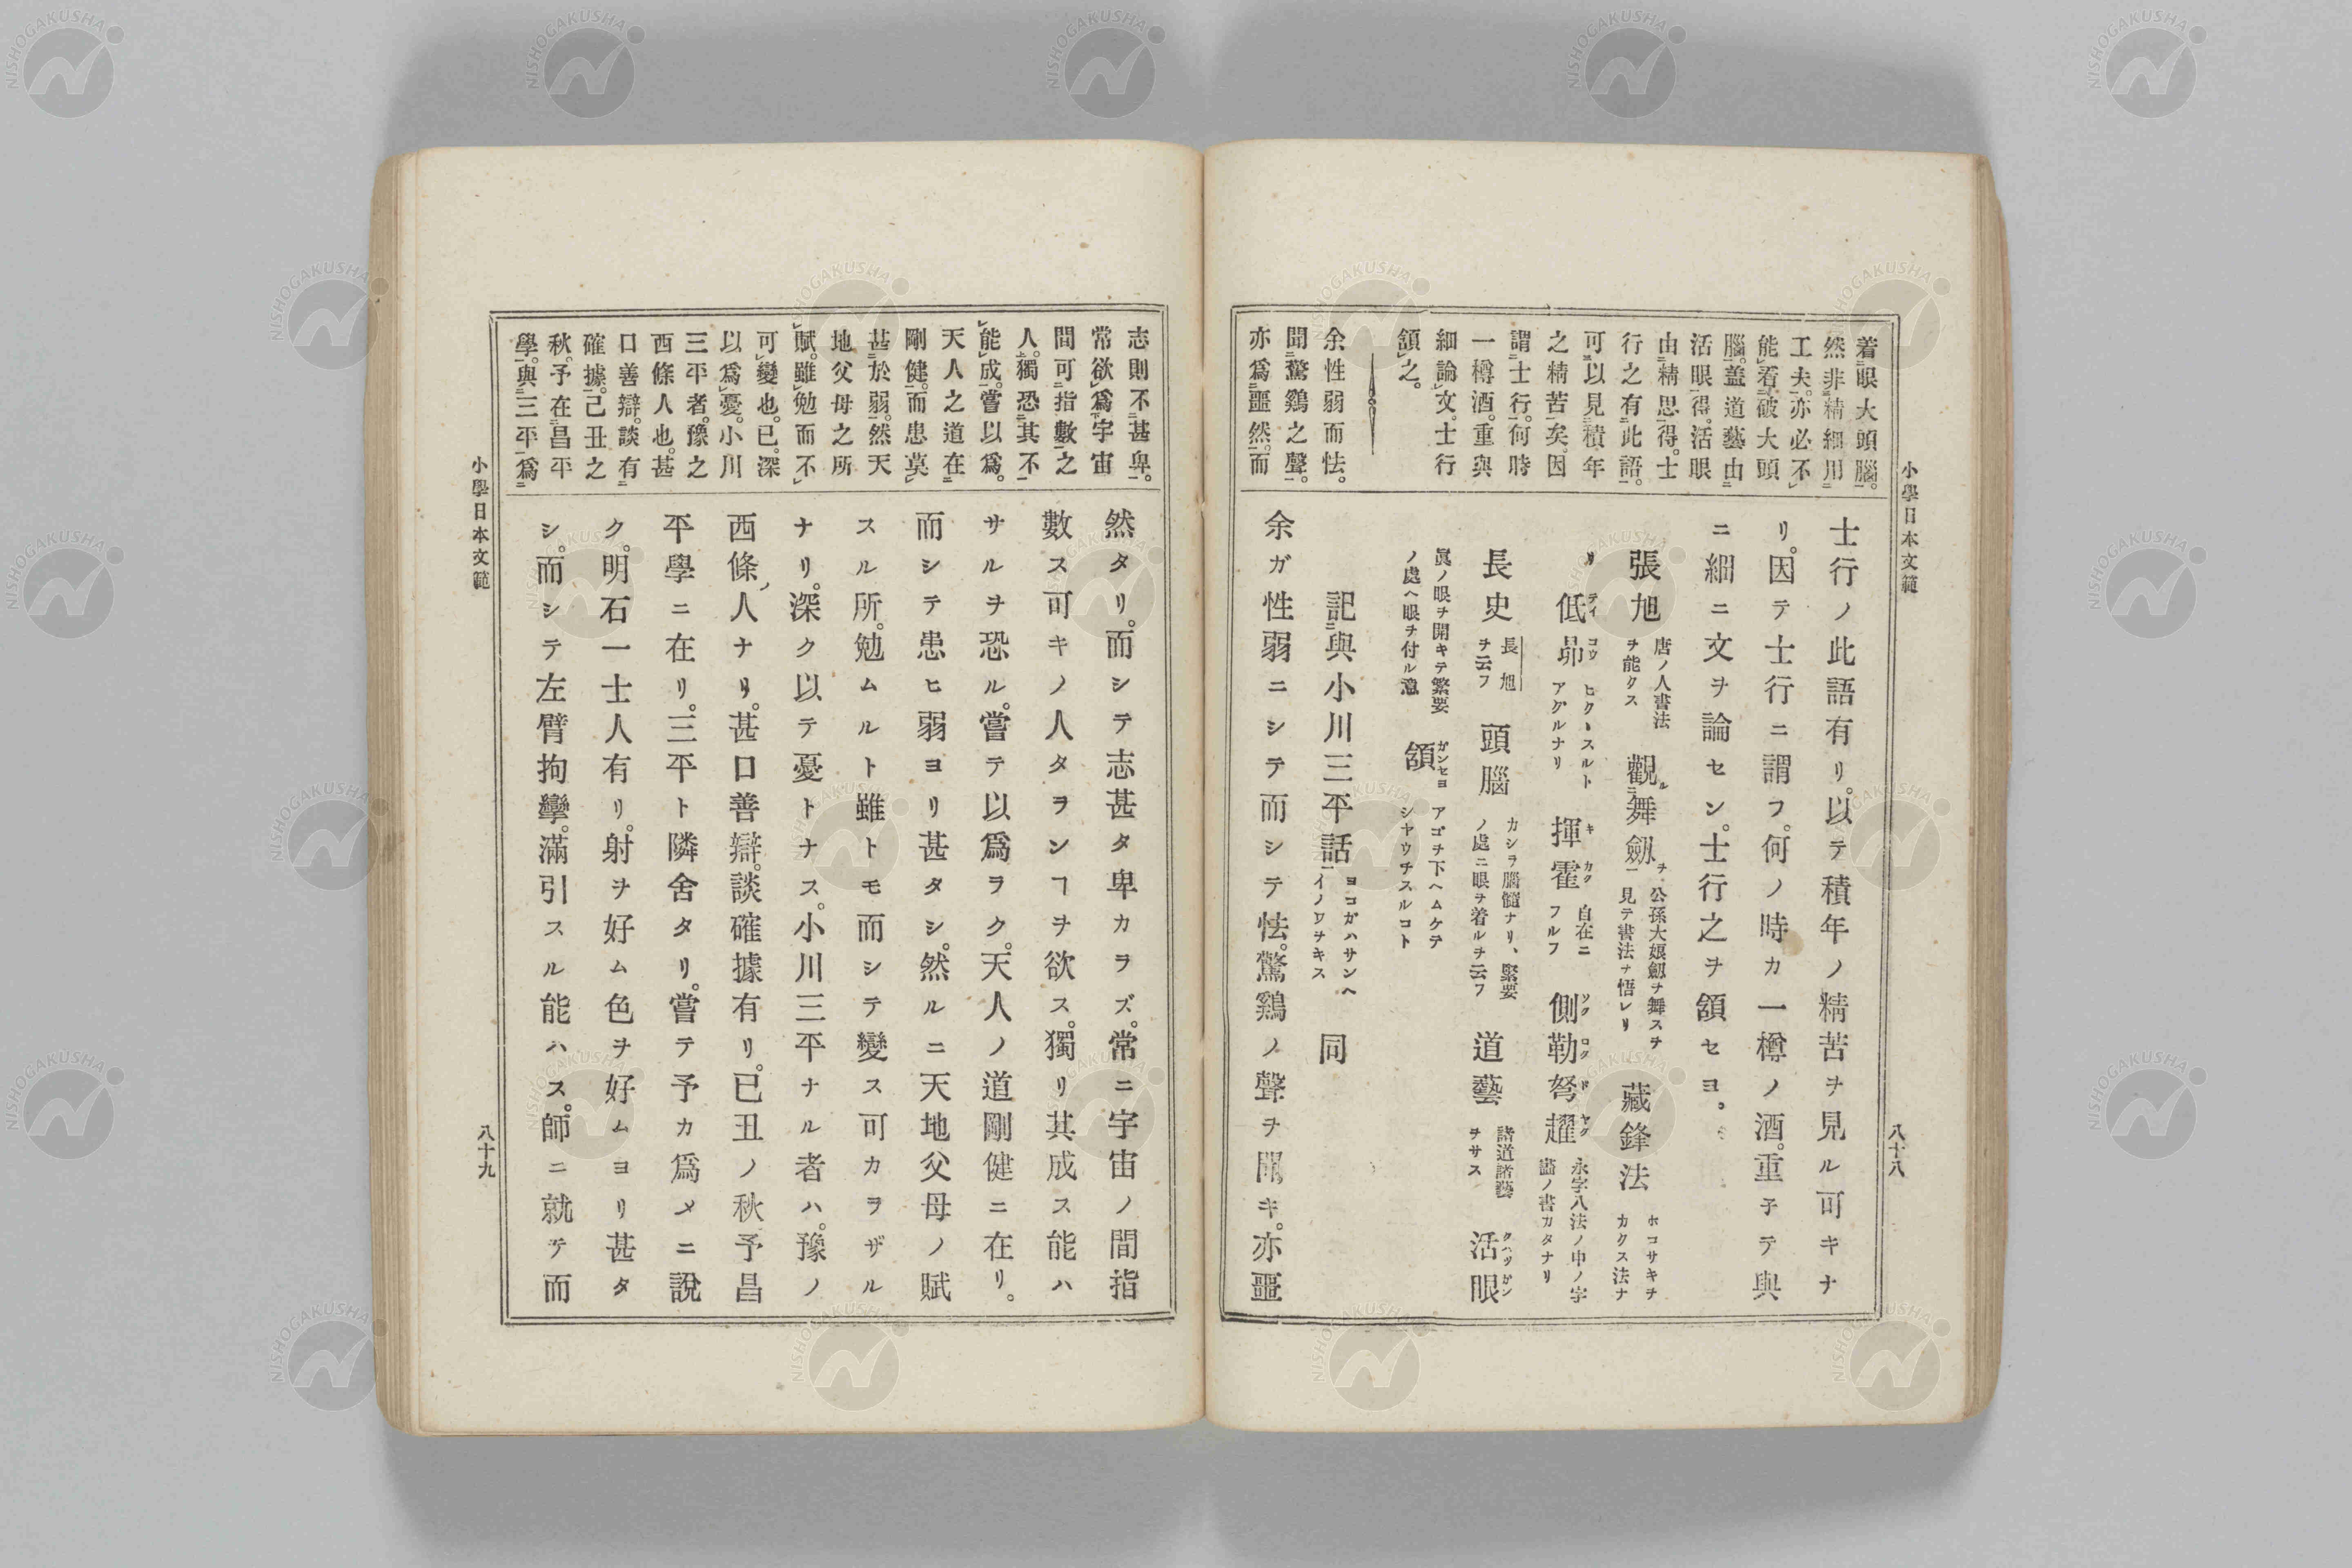 小學日本文範
八十八
着眼大頭腦。
然非精細用
工夫。亦必不
能看破大頭
腦。蓋道藝由
活眼得。活眼
由精思得。士
行之有此語。
可以見積年
之精苦矣。因
謂士行。何時
一樽酒。重與
細論文。士行
頷之。
余性弱而怯。
聞驚鷄之聲。
亦爲噩然。而
士行ノ此語有リ。以テ積年ノ精苦ヲ見ル可キナ
リ。因テ士行ニ謂フ。何ノ時カ一樽ノ酒。重子テ與
ニ細ニ文ヲ論セン。士行之ヲ頷セヨ。
張旭 唐ノ人書法ヲ能クス 觀ル舞劔ヲ 公孫大娘劔ヲ舞スヲ見テ書法ヲ悟レリ 藏鋒法 ホコサキヲカクス法ナ
リ 低昻 テイコウ ヒクヽスルトアグルナリ 揮霍 キカク 自在ニフルフ 側勒弩趯 ソクロクドヤク 永字八法ノ中ノ字 ノ書カタナリ
長史 長旭ヲ云フ 頭腦 カシラ腦髓ナリ、緊要ノ處ニ眼ヲ着ルヲ云フ 道藝 諸道諸藝ヲサス 活眼 クハツガン
眞ノ眼ヲ開キテ繁要ノ處ヘ眼ヲ付ル意 頷 ガンセヨ アゴヲ下ヘムケテシヤウチスルコト
記與小川三平話 ヨコガハサンヘイノワヲキス 同
余ガ性弱ニシテ而シテ怯。驚鷄ノ聲ヲ聞キ。亦噩
志則不甚卑。
常欲爲宇宙
間可指數之
人。獨恐其不
能成。嘗以爲。
天人之道在
剛健。而患莫
甚於弱。然天
地父母之所
賦。雖勉而不
可變也。已深
以爲憂。小川
三平者。豫之
西條人也。甚
口善辯。談有
確據。己丑之
秋。予在昌平
學。與三平爲
然タリ。而シテ志甚タ卑カラズ。常ニ宇宙ノ間指
數ス可キノ人タヲンヿヲ欲ス。獨リ其成ス能ハ
サルヲ恐ル。嘗テ以爲ヲク。天人ノ道剛健ニ在リ。
而シテ患ヒ弱ヨリ甚タシ。然ルニ天地父母ノ賦
スル所。勉ムルト雖トモ而シテ變ス可カヲザル
ナリ。深ク以テ憂トナス。小川三平ナル者ハ。豫ノ
西條ノ人ナリ。甚口善辯。談確據有リ。已丑ノ秋予昌
平學ニ在リ。三平ト隣舍タリ。嘗テ予カ爲メニ說
ク。明石一士人有リ。射ヲ好ム色ヲ好ムヨリ甚タ
シ。而シテ左臂拘攣。滿引スル能ハス。師ニ就テ而
小學日本文範
八十九